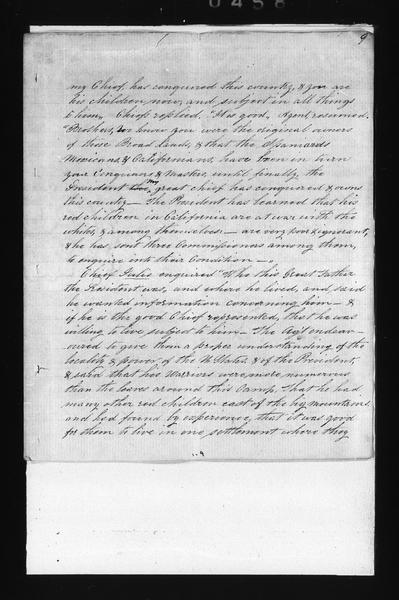 0458
9
my Chief, has conquered this country, & you are
his children now, and subject in all things
to him. Chief replied, "It is good, Agent resumed.
"Brothers, we know you were the original owners
of these Broad lands, & that the Spaniards
Mexicans & Californians, have been in turn
your Conquerors & Masters, until finally the
President my great chief has conquered & owns
this country — The President has learned that his
red children in California are at war with the
whites, & among themselves — are very poor & ignorant,
& he has sent three Commissioners among them,
to enquire into their Condition —
Chief Julio enquired "Who this Great Father
the President was, and where he lived, and said
he wanted information concerning him — &
if he is the good Chief represented, that he was
willing to live subject to him — The Agt endeav-
oured to give them a proper understanding of the
locality & power, of the U. States & of the President,
& said that his Warriors were more numerous
than the leaves around this Camp, that he had
many other red children east of the big mountains
and had found by experience, that it was good
for them to live in one settlement where they